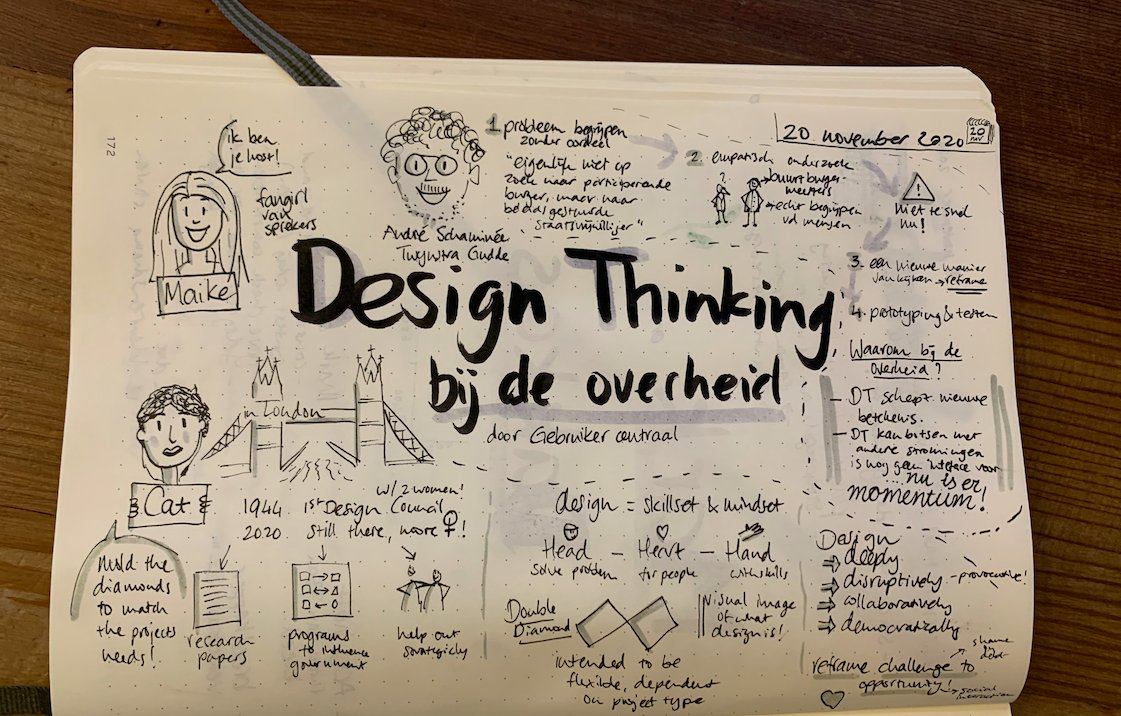 172
20 november 2020
20
NOV
ik ben
je host!
fangirl
van
sprekers
Maike
André Schaminée
Twynstra Gudde
1 probleem begrijpen
zonder oordeel
"eigenlijk niet op
zoek naar participerende
burger, maar naar
beleidsgestuurde
2. empatisch onderzoek
?
→ buurtburger-
meesters
→ echt begrijpen
vd mensen
!
niet te snel
nu!
3. een nieuwe manier
van kijken → reframe
4. prototyping & testen
Design Thinking
bij de overheid
door Gebruiker centraal
Waarom bij de
overheid?
- DT schept nieuwe
betekenis.
- DT kan botsen met
andere stromingen
is nog geen interface voor
... nu is er
momentum!
in London
Cat
1944 1st Design Council
w/ 2 women!
2020 still there, more ♀!
Mold the
diamonds
to match
the projects
needs!
research
papers
programs
to influence
government
help out
strategicly
design = skillset & mindset
Head - Heart - Hand
solve problem
for people
with skills
Double
Diamond
Visual image
of what
design is!
intended to be
flexible, dependent
on project type
Design
⇒ deeply
⇒ disruptively - provocative!
⇒ collaboratively
⇒ democratically
reframe challenge to
opportunity!
→ social
interaction